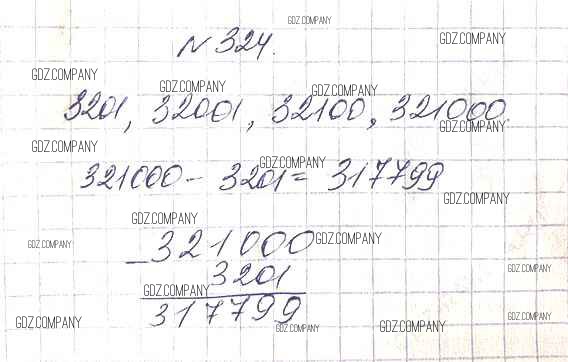 GDZ.COMPANY
№ 324.
GDZ.COMPANY
GDZ.COMPANY
GDZ.COMPANY
GDZ.COMPANY
3201, 32001, 32100, 321000.
GDZ.COMPANY
GDZ.COMPANY
GDZ.COMPANY
321000 - 3201 = 317799
GDZ.COMPANY
GDZ.COMPANY
GDZ.COMPANY
GDZ.COMPANY
- 321000
GDZ.COMPANY
3201
GDZ.COMPANY
317799
GDZ.COMPANY
GDZ.COMPANY
GDZ.COMPANY
GDZ.COMPANY